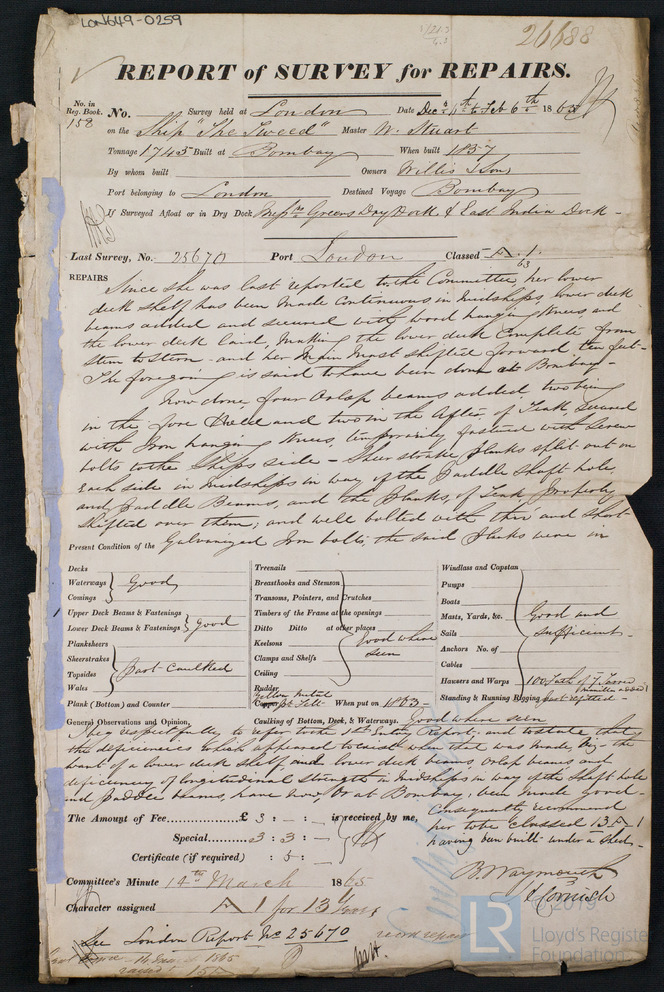 LON649-0259
26688
REPORT of SURVEY for REPAIRS.
No. in Reg. Book. 158
No. Survey held at London Date Decr to Feb 6th 1865
on the Ship "The Tweed" Master W. Stuart
Tonnage 1745 Built at Bombay When built 1857
By whom built Owners Willis & Son
Port belonging to London Destined Voyage Bombay
If Surveyed Afloat or in Dry Dock Messrs Greens Dry Dock & East India Dock
Last Survey, No. 25670 Port London Classed A.1. 63
REPAIRS Since she was last reported to the Committee, her lower
deck shelf has been made Continuous in midships, lower deck
beams added and secured with wood hanging Knees and
the lower deck laid, making the lower deck Complete from
Stem to Stern - and her Main Mast shifted forward ten feet -
The foregoing is said to have been done at Bombay -
Now done, four Orlop beams added, two being
in the fore Hold and two in the After, of Teak, secured
with Iron hanging Knees, temporarily fastened with Screw
bolts to the Ships side - Sheerstrake planks split out on
each side in midships in way of the Paddle Shaft hole,
and Paddle Beams, and the planks, of Teak properly
shifted over them; and well bolted with thro' and short
Galvanized Iron bolts; the said planks were in
Present Condition of the
Decks
Waterways
Comings
Good
Upper Deck Beams & Fastenings
Lower Deck Beams & Fastenings
good
Planksheers
Sheerstrakes
Topsides
Wales
part Caulked
Plank (Bottom) and Counter
Treenails
Breasthooks and Stemson
Transoms, Pointers, and Crutches
Timbers of the Frame at the openings
Ditto Ditto at other places
Keelsons
Clamps and Shelfs
Ceiling
Rudder
Good where seen
Yellow Metal
Copper Felt When put on 1863
Caulking of Bottom, Deck, & Waterways. Good where seen
Windlass and Capstan
Pumps
Boats
Masts, Yards, &c.
Sails
Anchors No. of
Cables
Good and sufficient
Hausers and Warps 100 Fath of 7
Standing & Running Rigging part refitted
General Observations and Opinion,
I beg respectfully to refer to the 1st Entry Report, and to state that
the deficiencies which appeared to exist when that was made, viz - the
want of a lower deck shelf and lower deck beams, Orlop beams and
deficiency of longitudinal strength in midships in way of the shaft hole
and paddle beams, have now, or at Bombay, been made good -
Consequently recommend
her to be classed 13 A 1
having been built under a Shed -
B. Waymouth
J Cornish
The Amount of Fee £ 3 : - : - is received by me,
Special 3 : 3 : -
Certificate (if required) : 5 : -
Committee's Minute 14th March 1865
Character assigned A 1 for 13 Years
See London Report No 25670
record repair
© 2019
LR
Lloyd's Register
Foundation